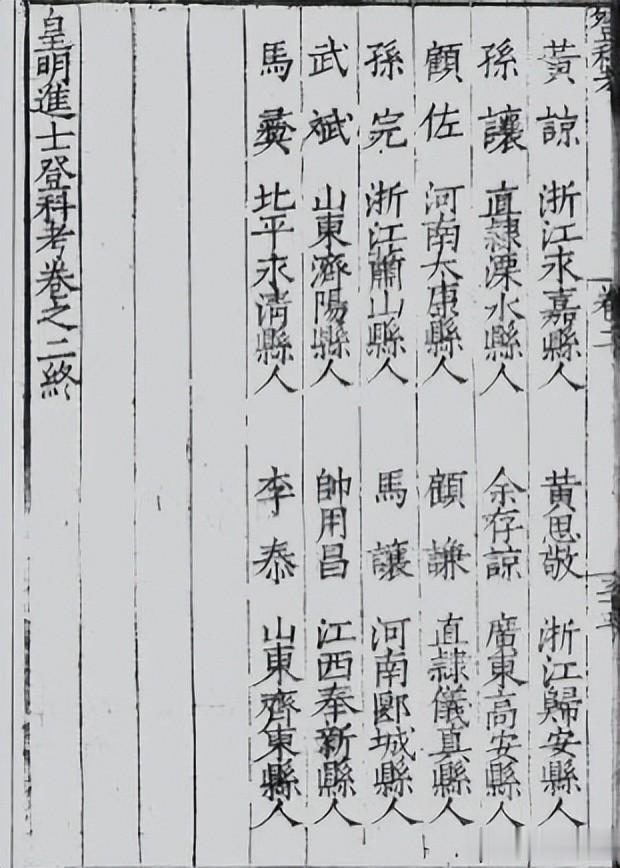 登科考 卷二
黃諒 浙江永嘉縣人 黃思敬 浙江歸安縣人
孫讓 直隸溧水縣人 余存諒 廣東高安縣人
顧佐 河南太康縣人 顧謙 直隸儀真縣人
孫完 浙江蕭山縣人 馬讓 河南郾城縣人
武斌 山東濟陽縣人 帥用昌 江西奉新縣人
馬彝 北平永清縣人 李泰 山東齊東縣人
皇明進士登科考卷之二終